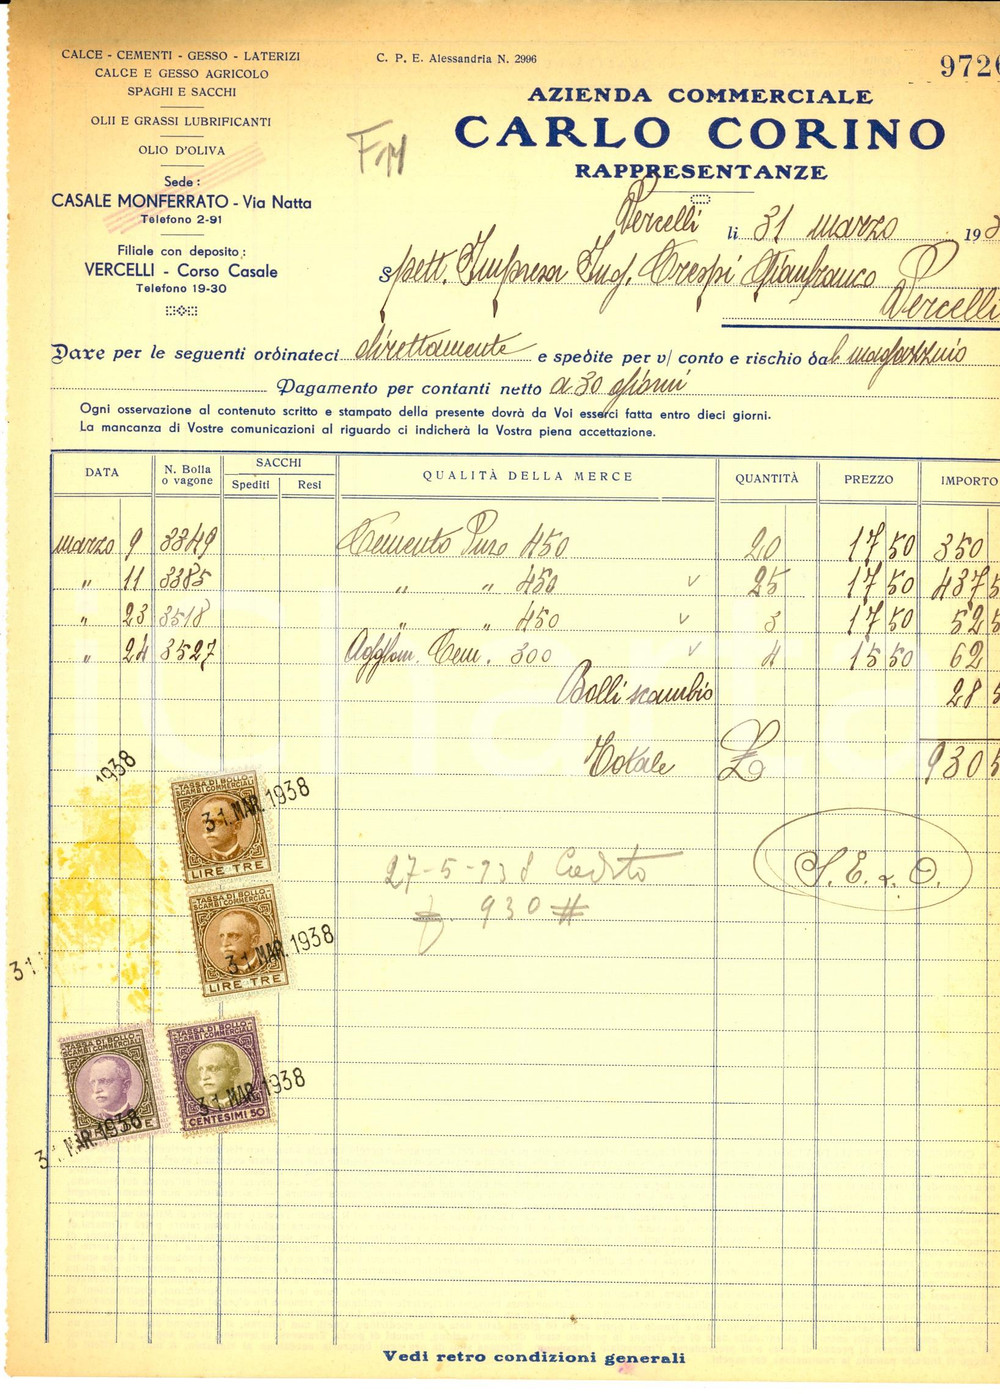 CALCE - CEMENTI - GESSO - LATERIZI
CALCE E GESSO AGRICOLO
SPAGHI E SACCHI
OLII E GRASSI LUBRIFICANTI
OLIO D'OLIVA
Sede:
CASALE MONFERRATO - Via Natta
Telefono 2-91
Filiale con deposito:
VERCELLI - Corso Casale
Telefono 19-30
C. P. E. Alessandria N. 2996
972
AZIENDA COMMERCIALE
CARLO CORINO
RAPPRESENTANZE
Vercelli li 31 marzo 193
Spett. Impresa Ing. Crespi Gianfranco
Vercelli
Dare per le seguenti ordinateci direttamente e spedite per v/ conto e rischio dal magazzino
Pagamento per contanti netto a 30 giorni
Ogni osservazione al contenuto scritto e stampato della presente dovrà da Voi esserci fatta entro dieci giorni.
La mancanza di Vostre comunicazioni al riguardo ci indicherà la Vostra piena accettazione.
DATA N. Bolla o vagone SACCHI Spediti Resi QUALITÀ DELLA MERCE QUANTITÀ PREZZO IMPORTO
marzo 9 3349 Cemento Puro 450 20 17 50 350
" 11 3385 " " 450 v 25 17 50 437 5
" 23 3518 " " 450 v 3 17 50 52 5
" 24 3527 Agglom. Cem. 300 v 4 15 50 62
Bolli scambio 28 5
Totale £ 930 5
1938
TASSA DI BOLLO
SCAMBI COMMERCIALI
LIRE TRE
31 MAR. 1938
S. E. & O.
27-5-938 Credito
£. 930 #
TASSA DI BOLLO
SCAMBI COMMERCIALI
LIRE TRE
31 MAR. 1938
31
TASSA DI BOLLO
SCAMBI COMMERCIALI
31 MAR. 1938
TASSA DI BOLLO
SCAMBI COMMERCIALI
CENTESIMI 50
31 MAR. 1938
Vedi retro condizioni generali